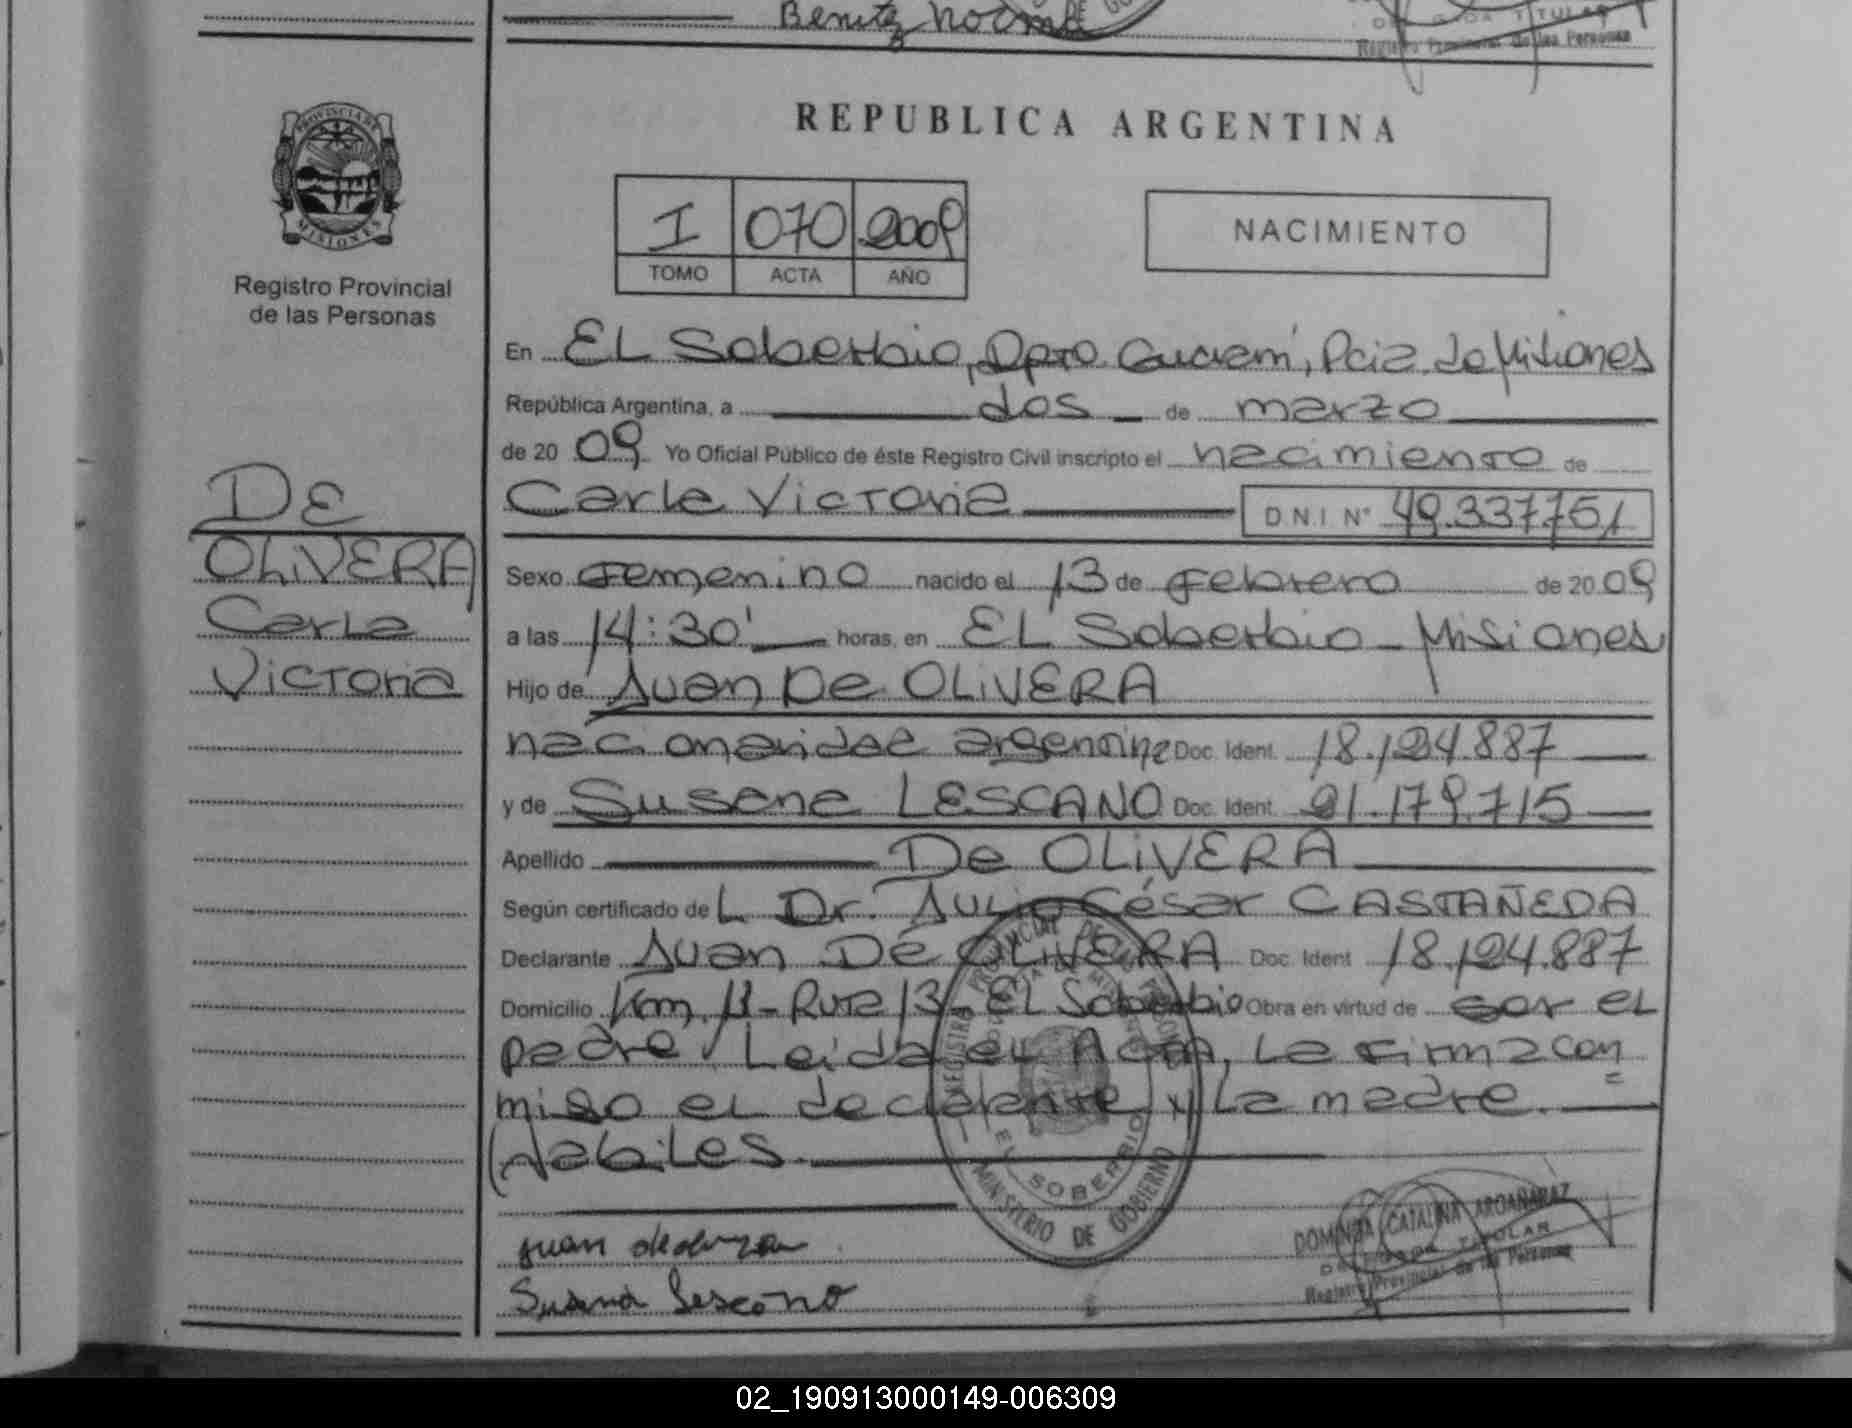 Benitez Norma
TITULAR
Registro Provincial de las Personas
PROVINCIA DE
MISIONES
Registro Provincial
de las Personas
DE
OLIVERA
Carla
Victoria
REPUBLICA ARGENTINA
I 070 2009
TOMO ACTA AÑO
NACIMIENTO
En EL Soberbio, Dpto. Guaraní, Pcia. de Misiones
República Argentina, a dos de marzo
de 2009 Yo Oficial Público de éste Registro Civil inscripto el nacimiento de
Carla Victoria D.N.I. N° 49.337.751
Sexo Femenino nacido el 13 de Febrero de 2009
a las 14:30' horas, en EL Soberbio - Misiones
Hijo de Juan De OLIVERA
nacionalidad argentina Doc. Ident. 18.124.887
y de Susana LESCANO Doc. Ident. 21.179.715
Apellido De OLIVERA
Según certificado de L Dr. Julio César CASTAÑEDA
Declarante Juan De OLIVERA Doc. Ident 18.124.887
Domicilio Km. 11 - Ruta 13 - EL Soberbio Obra en virtud de ser el
padre / Leída el Acta, La firma con
migo el declarante y La madre.
Habiles.
REGISTRO PROVINCIAL DE LAS PERSONAS
EL SOBERBIO
MINISTERIO DE GOBIERNO
juan deolivera
Susana Lescano
DOMINGA CATALINA AROAÑARAZ
TITULAR
Registro Provincial de las Personas
02_190913000149-006309